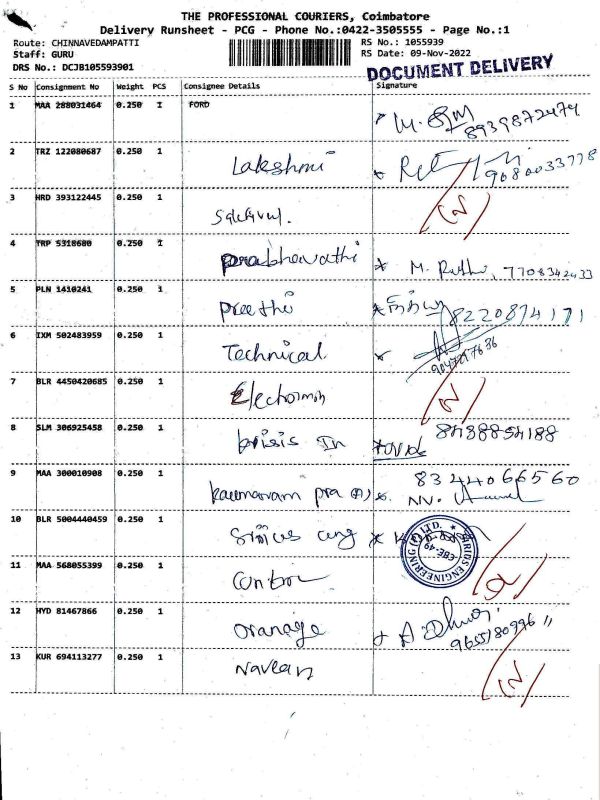 THE PROFESSIONAL COURIERS, Coimbatore
Delivery Runsheet - PCG - Phone No.:0422-3505555 - Page No.:1
Route: CHINNAVEDAMPATTI
Staff: GURU
DRS No.: DCJB105593901
RS No.: 1055939
RS Date: 09-Nov-2022
DOCUMENT DELIVERY
S No Consignment No Weight PCS Consignee Details Signature
1 MAA 288031464 0.250 1 FORD
8939872474
2 TRZ 122080687 0.250 1 Lakshmi 9080033778
3 HRD 393122445 0.250 1
4 TRP 5318680 0.250 1 prabhavathi M. Ruthi, 7708342433
5 PLN 1410241 0.250 1 preethi 8220874171
6 IXM 502483959 0.250 1 Technical
9047257636
7 BLR 4450420685 0.250 1
8 SLM 306925458 0.250 1 krisis In 8438854188
9 MAA 300010908 0.250 1 8344066560
10 BLR 5004440459 0.250 1
SIRIUS ENGINEERING (P) LTD.
CBE-49
11 MAA 568055399 0.250 1 Control
12 HYD 81467866 0.250 1 Orange
9655180996
13 KUR 694113277 0.250 1 Naveen